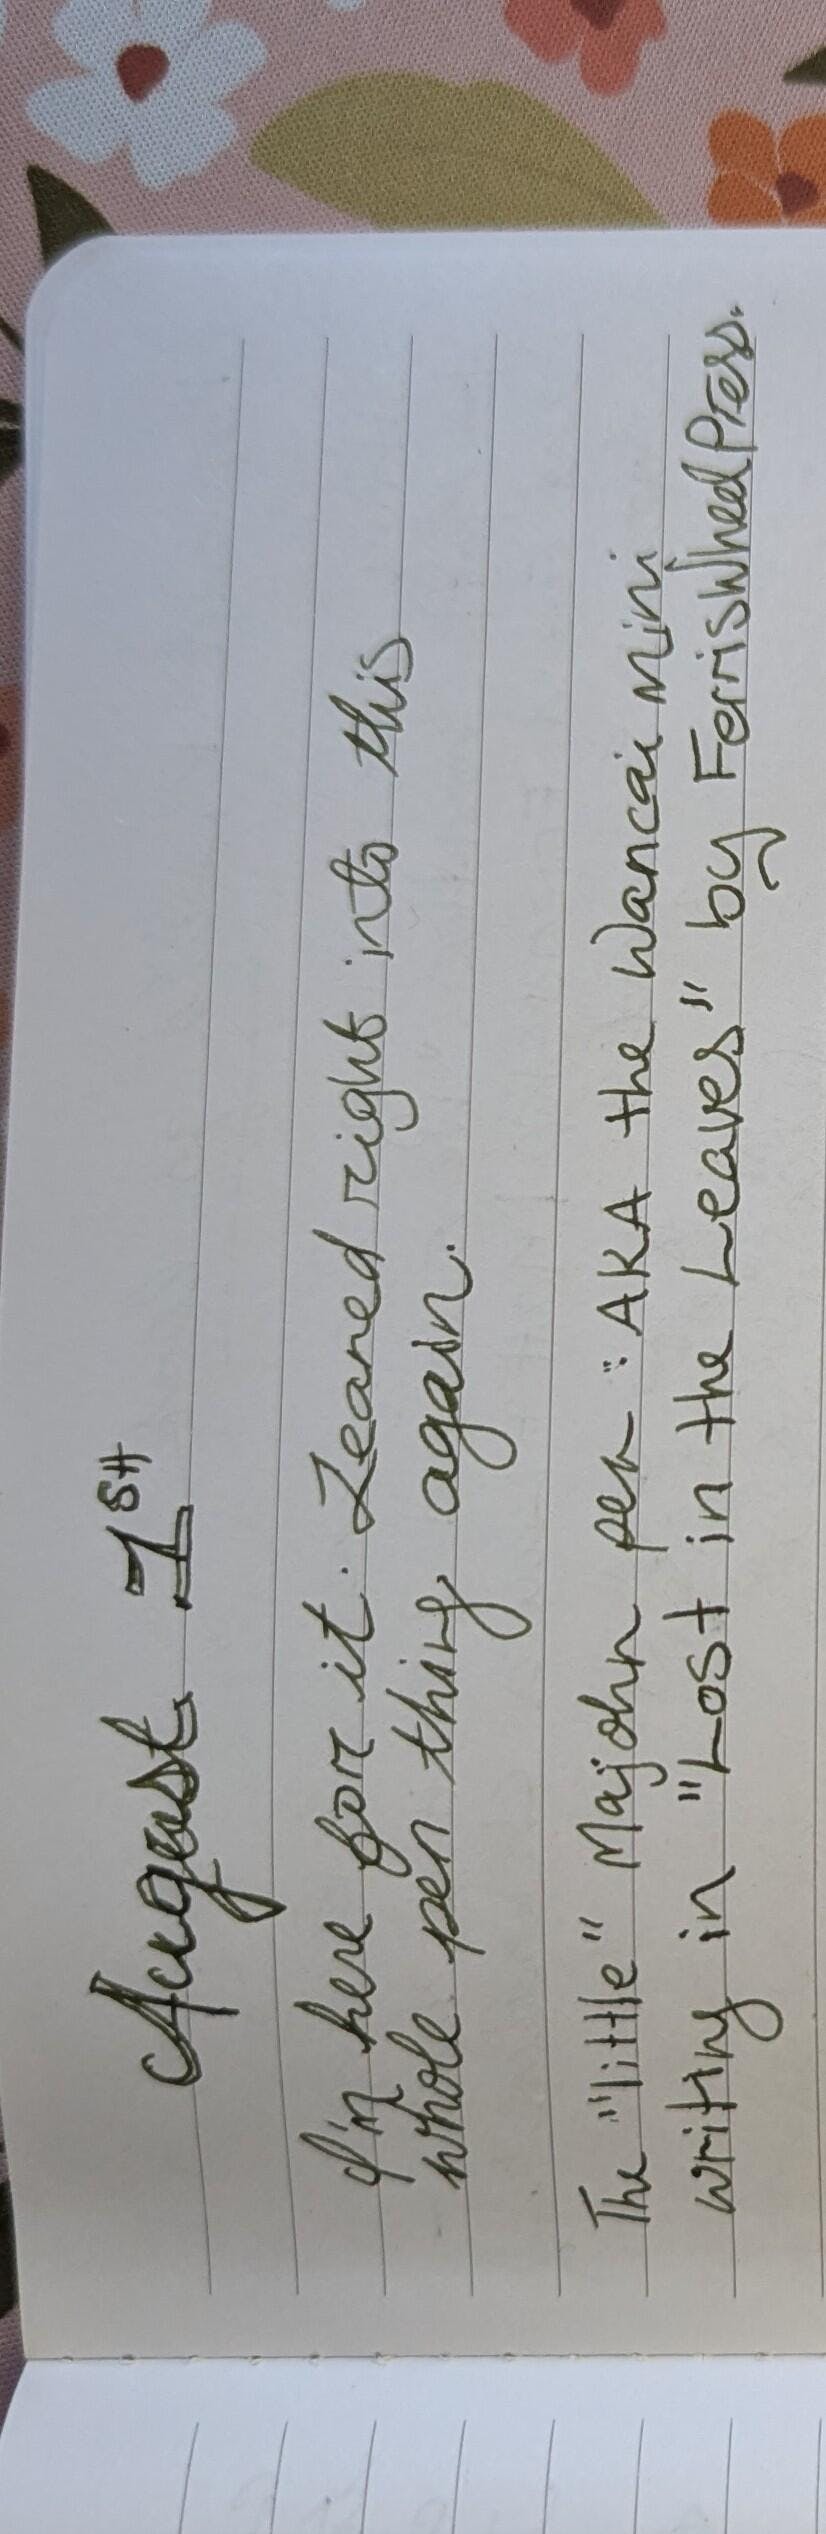 August 1st
I'm here for it. Leaned right into this
whole pen thing again.
The "little" Majohn pen : AKA the Wancai Mini
writing in "Lost in the Leaves" by FerrisWheelPress.